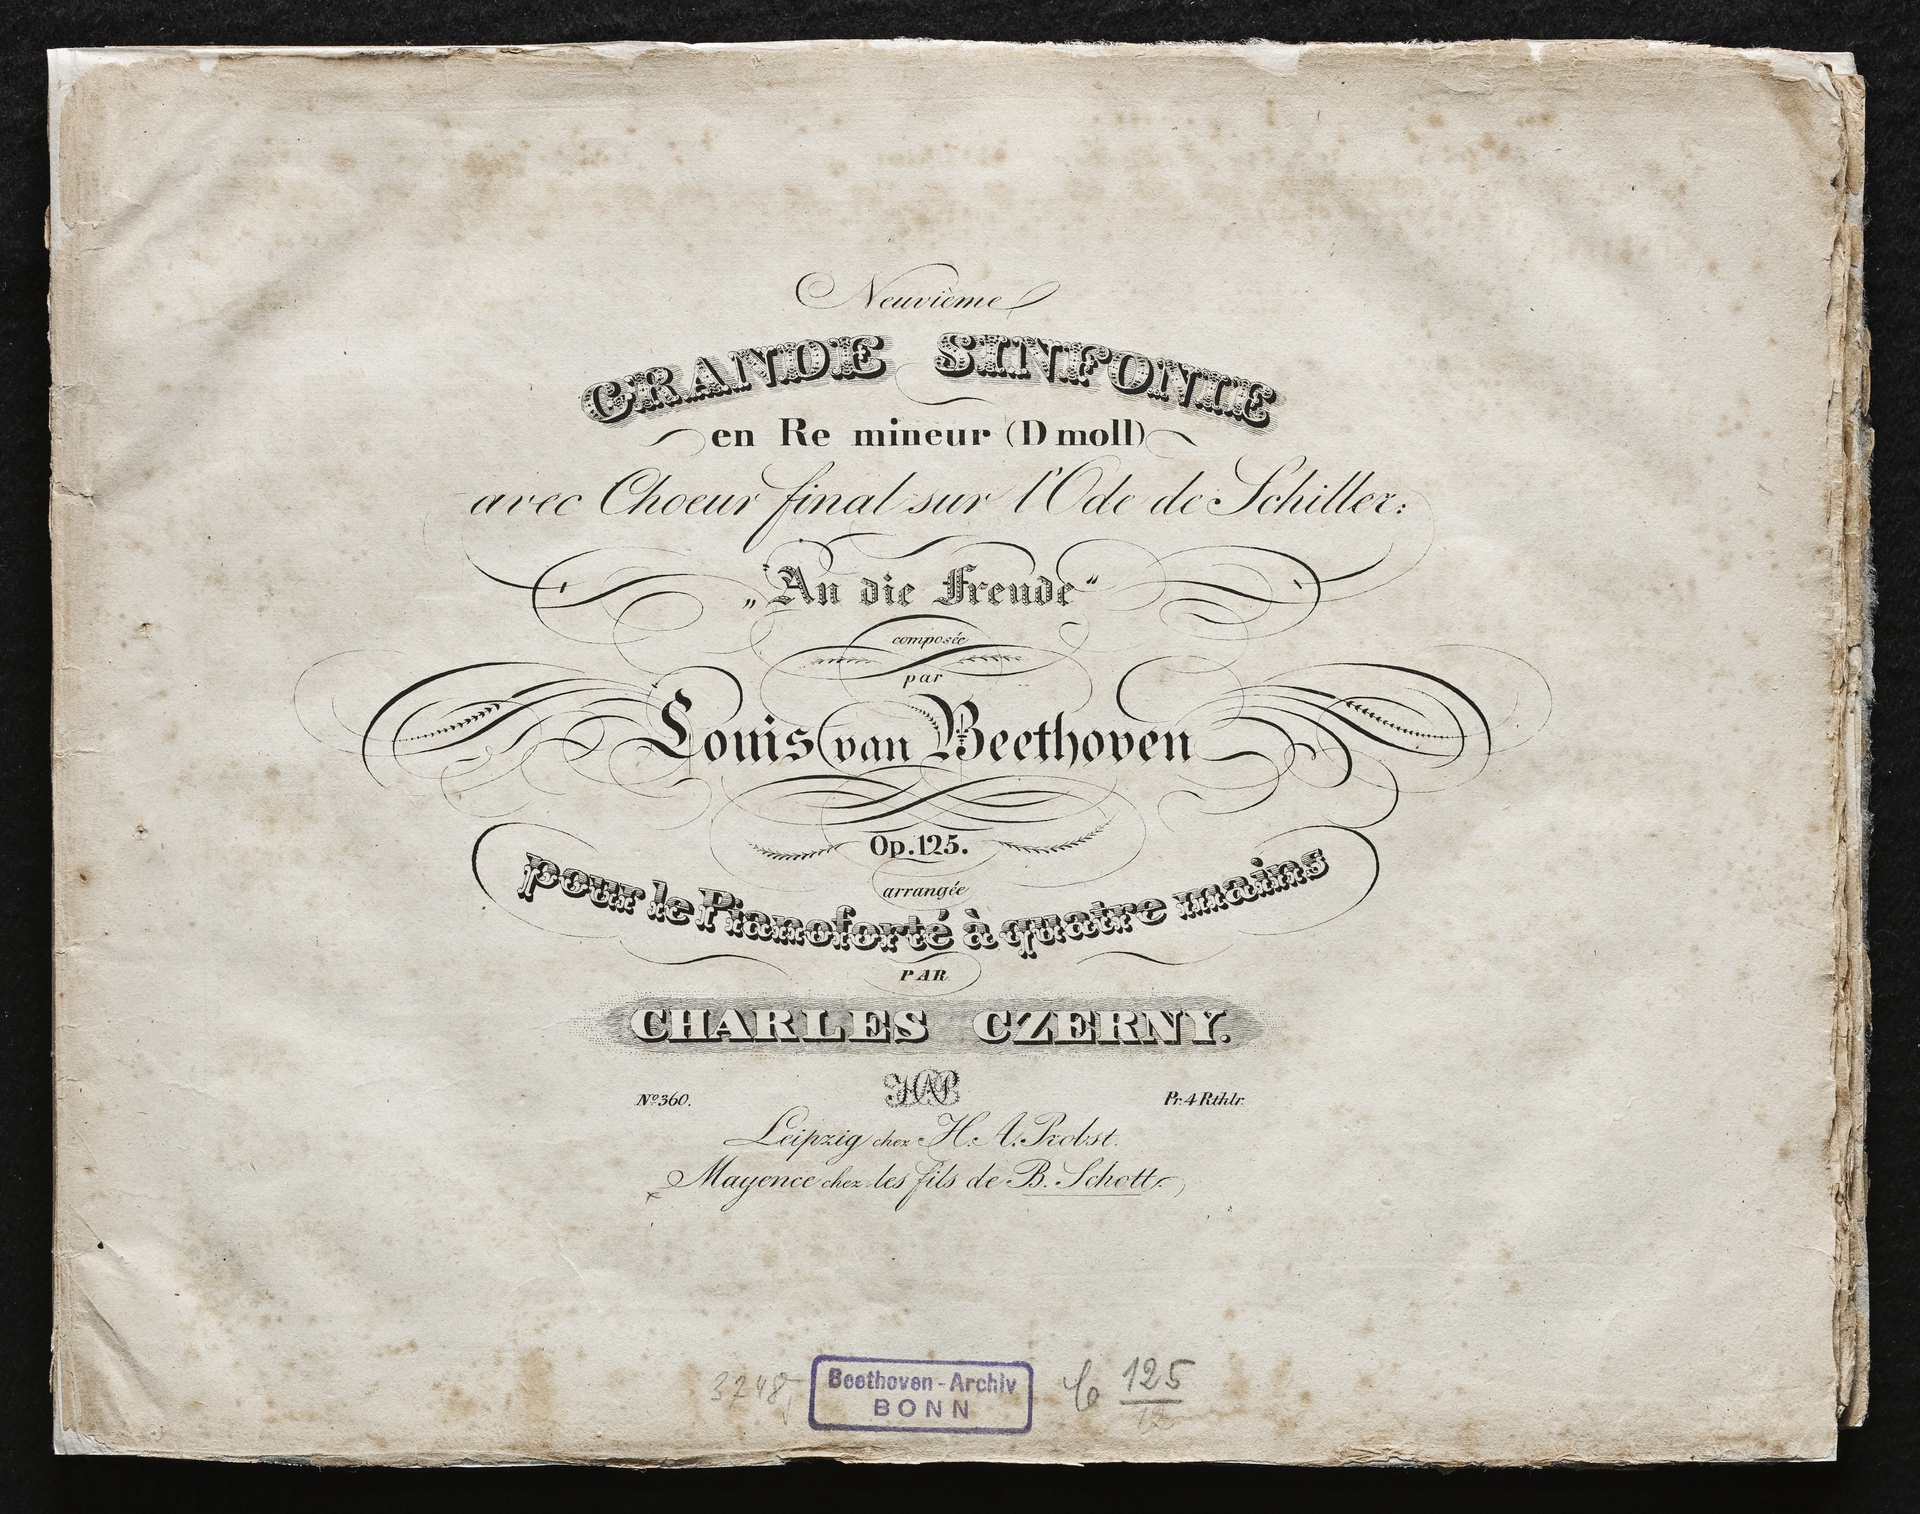 Neuvième
GRANDE SINFONIE
en Re mineur (D moll)
avec Choeur final sur l'Ode de Schiller:
„An die Freude“
composée
par
Louis van Beethoven
Op. 125.
arrangée
pour le Pianoforté à quatre mains
PAR
CHARLES CZERNY.
No 360. HAP Pr. 4 Rthlr.
Leipzig chez H. A. Probst.
Mayence chez les fils de B. Schott.
Beethoven-Archiv
BONN
125
12